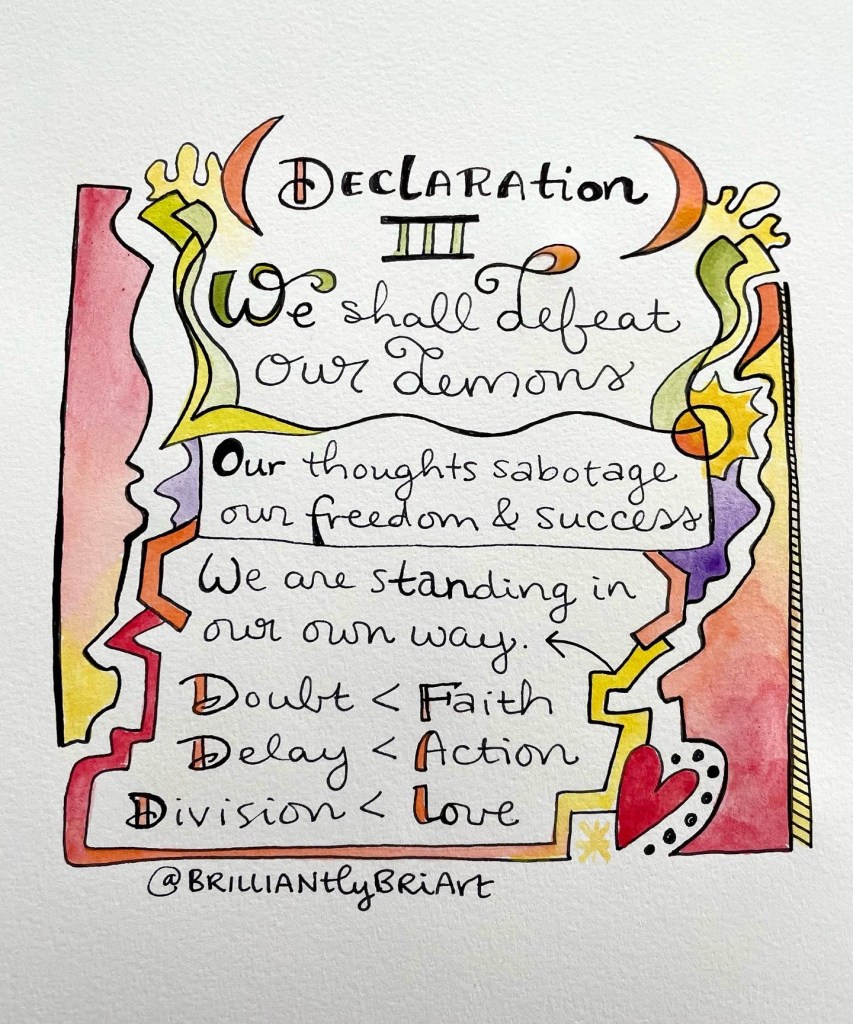 DECLARAtion
III
We shall defeat
our demons
Our thoughts sabotage
our freedom & success
We are standing in
our own way.
Doubt < Faith
Delay < Action
Division < Love
@BRILLIANtlyBRiArt